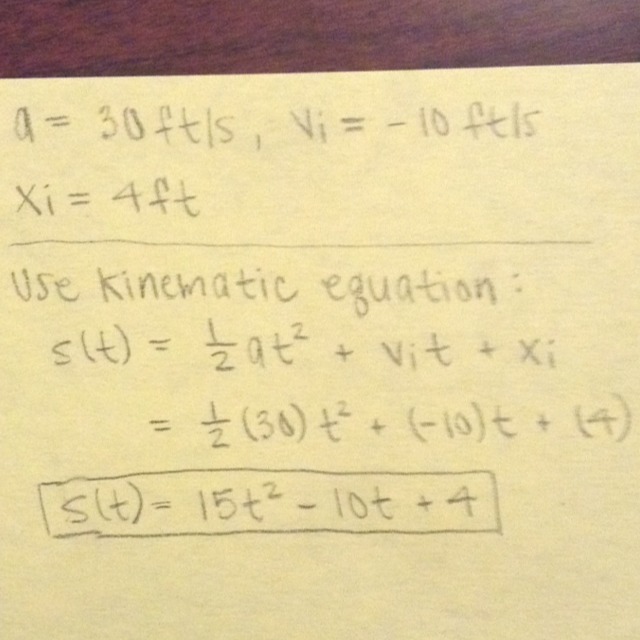 a = 30 ft/s, Vi = -10 ft/s
Xi = 4ft
Use kinematic equation:
s(t) = ½at² + Vit + Xi
= ½(30)t² + (-10)t + (4)
s(t) = 15t² - 10t + 4